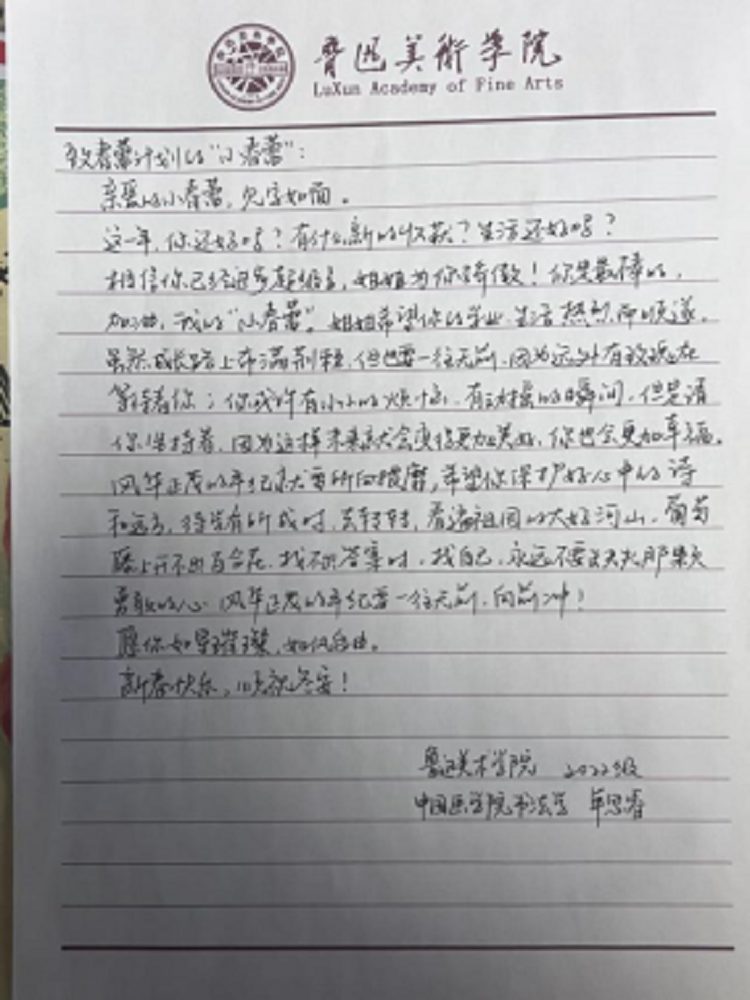 鲁迅美術学院
LuXun Academy of Fine Arts
致春蕾计划的“小春蕾”：
亲爱的小春蕾，见字如面。
这一年，你还好吗？有什么新的收获？生活还好吗？
相信你已经进步超级多，姐姐为你骄傲！你是最棒的，
加油，我的“小春蕾”。姐姐希望你的学业、生活热烈而顺遂。
虽然成长路上布满荆棘，但也要一往无前，因为远处有玫瑰在
等待着你；你或许有小小的烦恼、有动摇的瞬间，但是请
你坚持着，因为这样未来就会变得更加美好，你也会更加幸福。
风华正茂的年纪就要所向披靡，希望你保护好心中的诗
和远方，待学有所成时，去转转，看遍祖国的大好河山。葡萄
藤上开不出百合花，找不到答案时，找自己，永远不要丢失那颗
勇敢的心。风华正茂的年纪要一往无前，向前冲！
愿你如星璀璨，如风自由。
新春快乐，顺祝冬安！
鲁迅美术学院 2022级
中国画学院书法学